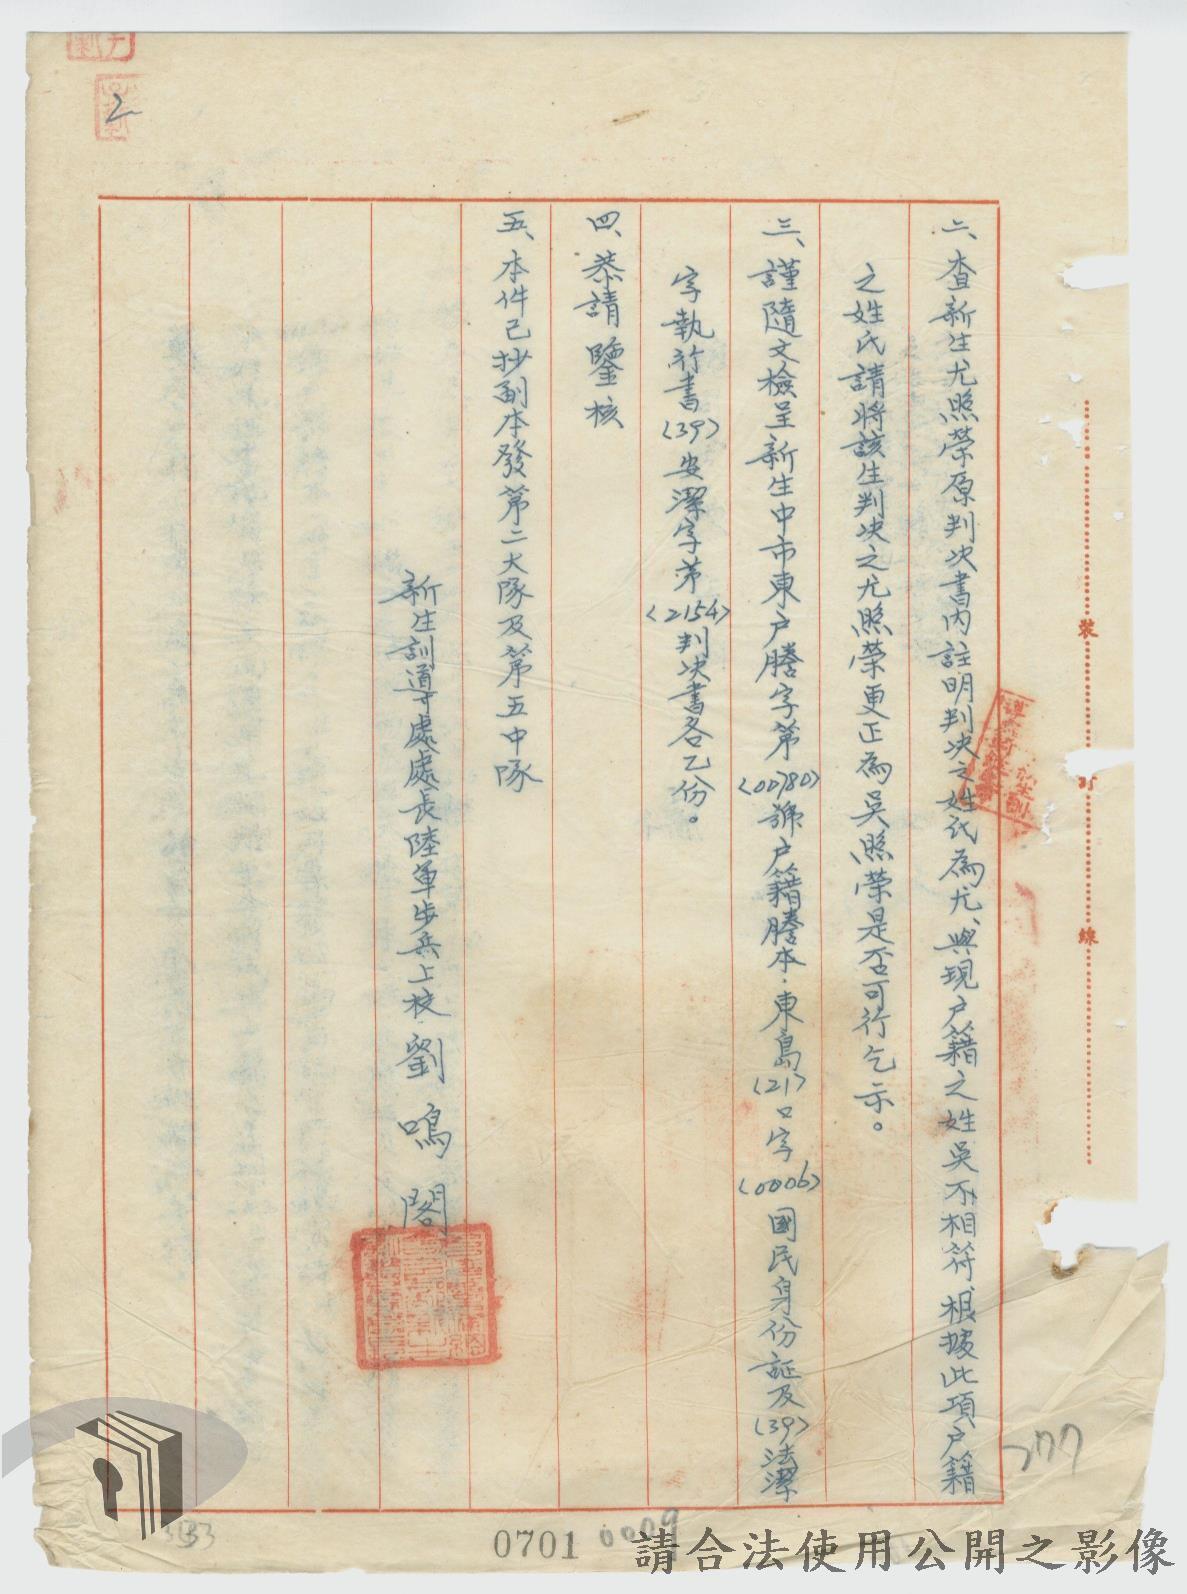 2
二、查新生尤照榮原判決書内註明判決之姓氏為尤、與現户籍之姓吳不相符、根據此項户籍
之姓氏請將該生判決之尤照榮更正為吳照榮是否可行乞示。
三、謹隨文檢呈新生中市東户謄字第(00780)號户籍謄本．東島(21)口字(0006)國民身份証及(39)法潔
字執行書(39)安潔字第(2154)判决書各乙份。
四、恭請鑒核
五、本件已抄副本發第二大隊及第五中隊
新生訓導處處長陸軍步兵上校劉鳴閣
裝
訂
線
777
0701
0009
請合法使用公開之影像